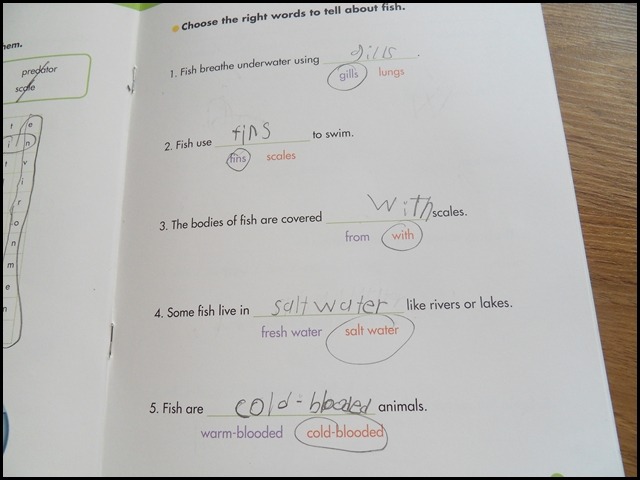 hem.
predator
scale
t e
i n
t v
i
r
o
n
m
e
n
Choose the right words to tell about fish.
1. Fish breathe underwater using gills.
gills lungs
2. Fish use fins to swim.
fins scales
3. The bodies of fish are covered with scales.
from with
4. Some fish live in salt water like rivers or lakes.
fresh water salt water
5. Fish are cold-blooded animals.
warm-blooded cold-blooded